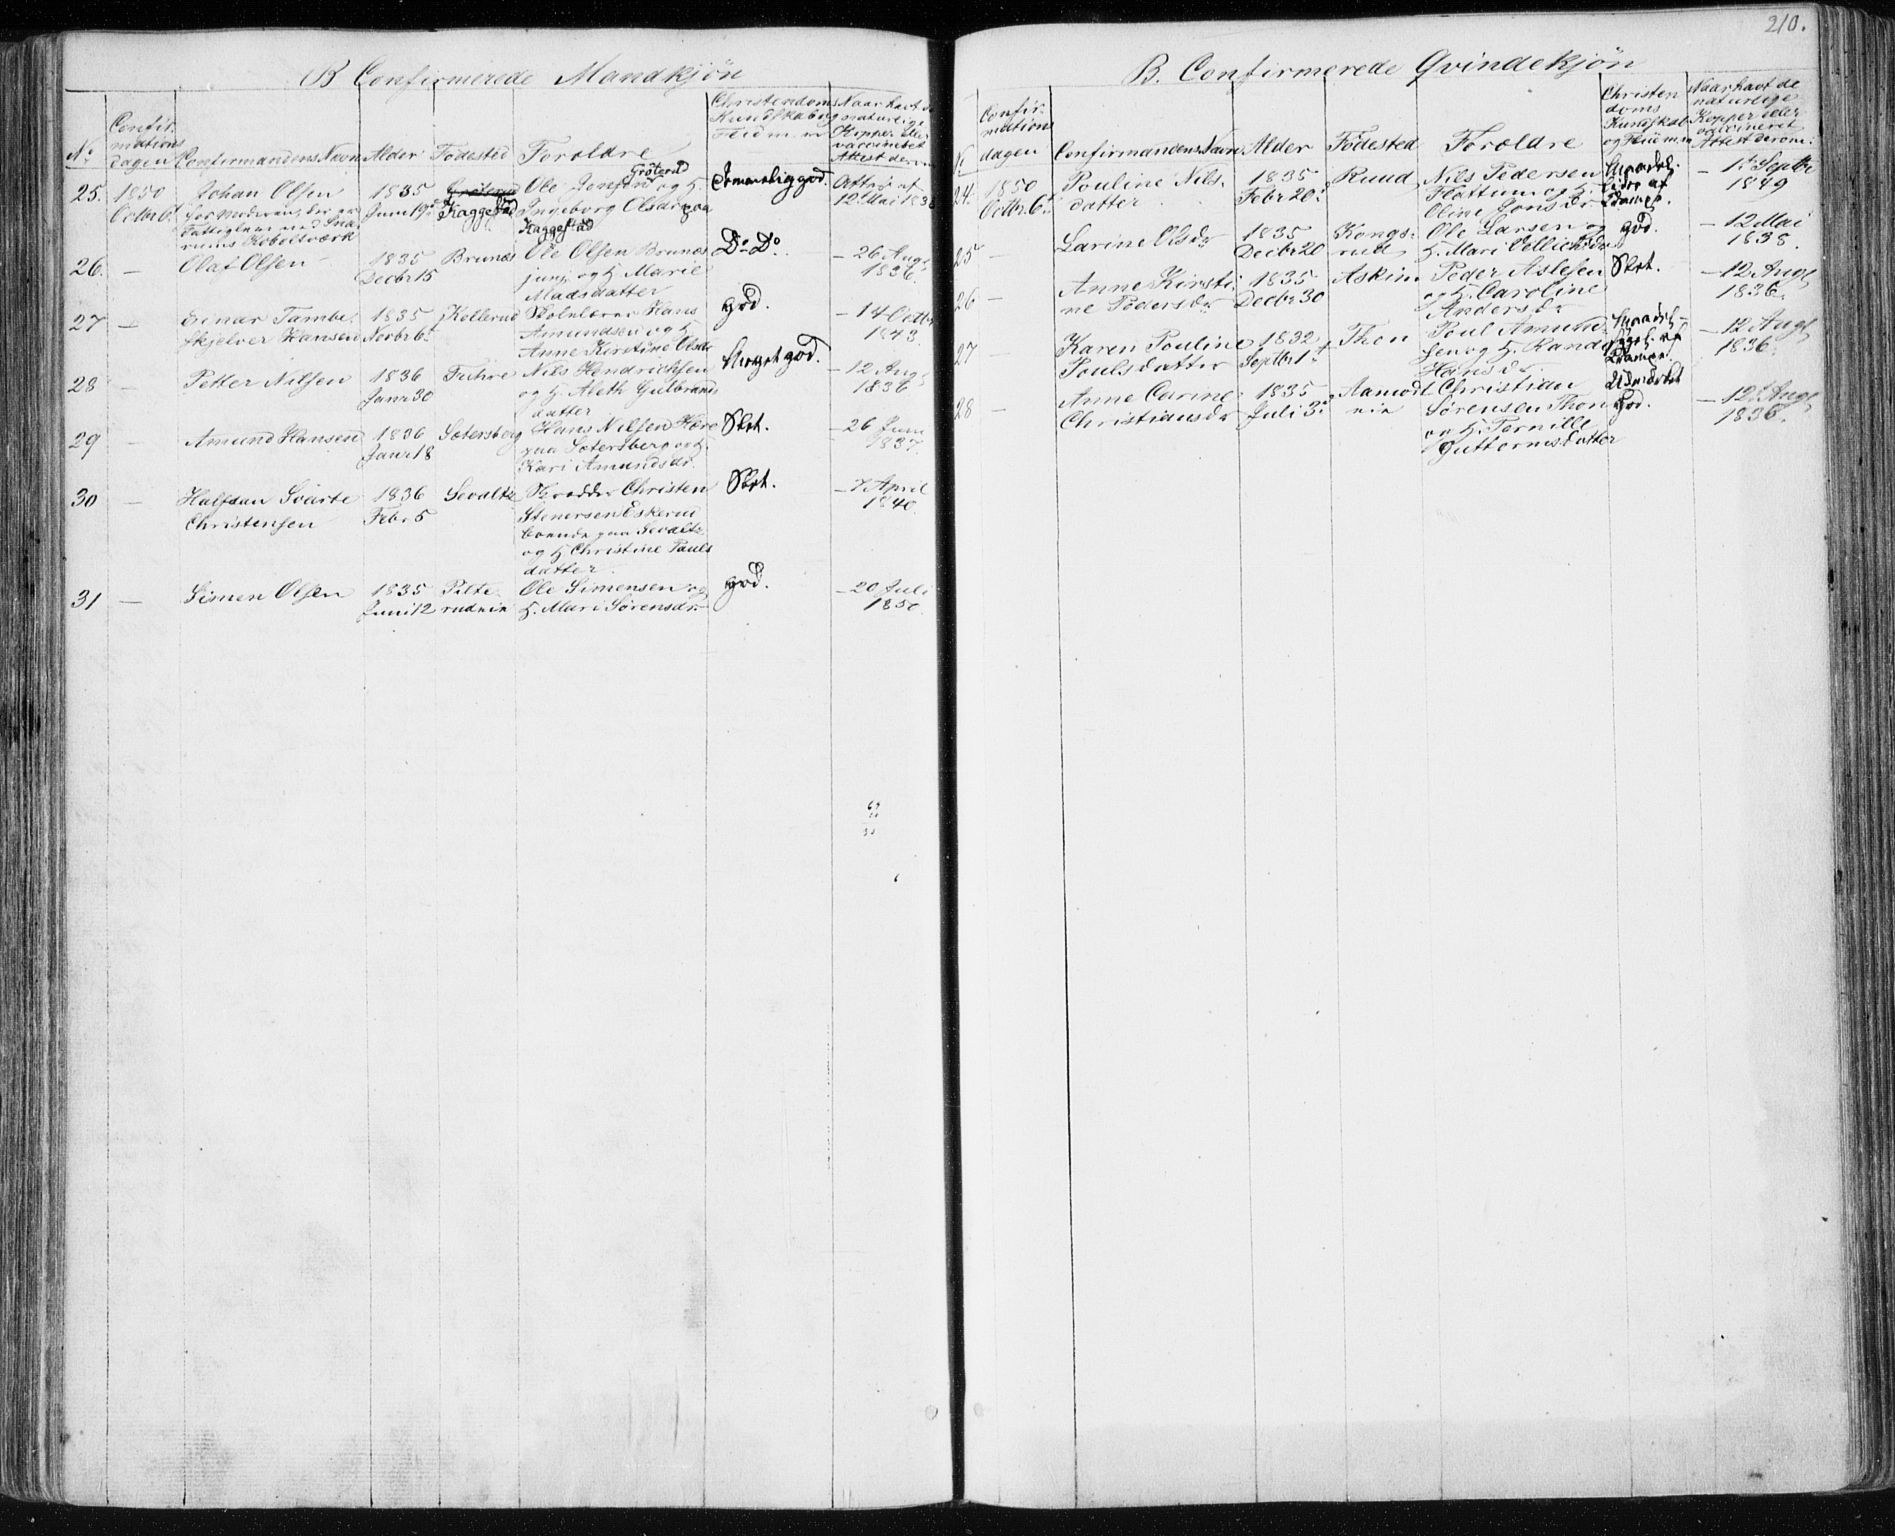 210.
B Confirmerede Mandkjøn
No
Confir-
mations
dagen
Confirmandens Navn
Alder
Fødested
Forældre
Christendoms
Kundskab og
Naar havt de
naturlige
Kopper eller
vaccineret
Attest derom
25. 1850 Octbr 6
Johan Olsen
1835
Juni 19
Grøterud
Kaggestad
Ole Jonsen Grøterud og H.
Ingeborg Olsdr paa
Kaggestad
Temmelig god.
Attest af
12 Mai 1838
26. —
Olaf Olsen
1835
Decbr 15
Brunæs
Ole Olsen Brunæs
jun. og H. Marie
Madsdatter
Do Do
— 26 Aug
1836
27 —
Einar Tambe-
skjelver Hansen
1835
Novbr 6
Kollerud
Skolelærer Hans
Amundsen og H.
Anne Kirstine Olsdr
god.
— 14 Octbr
1843
28 —
Petter Nilsen
1836
Janr 30
Fuhre
Nils Hendrichsen
og H. Aleth Gulbrands
datter
Meget god.
— 12 Aug
1836
29 —
Amund Hansen
1836
Janr 18
Sætersberg
Hans Nilsen Hære
paa Sætersberg og H.
Kari Amundsdr.
— 26 Juni
1837.
30 —
Halfdan Svarte
Christensen
1836
Febr 5
Sevaltz
Skrædder Christen
Stenersen Eskerud
boende paa Sevaltz
og H. Christine Pauls
datter.
— 7 April
1840
31 —
Simen Olsen
1835
Juni 12
Pilte
rudeie
Ole Simensen og
H. Mari Sørensdr.
god.
— 20 Juli
1850.
B. Confirmerede Qvindekjøn
No
Confir-
mations
dagen
Confirmandens Navn
Alder
Fødested
Forældre
Christen
doms
Kundskab
og Fliid m.m
Naar havt de
naturlige
Kopper eller
vaccineret
Attest derom
24. 1850 Octbr. 6
Pouline Nils-
datter
1835
Febr 20
Ruud
Nils Pedersen
Flattum og H.
Oline Jonsdr
— 1 Septbr
1849
25 —
Larine Olsdr
1835
Decbr 20
Kongs-
rud
Ole Larsen og
H. Mari
god.
— 12 Mai
1838.
26 —
Anne Kirsti-
ne Pedersdr
1835
Decbr 30
Askim
Peder Aslesen
og H. Caroline
Andersdr
— 12 Aug
1836.
27
Karen Pouline
Poulsdatter
1832
Septbr 1
Thon
Poul Amund-
sen og H. Randi
Hansdr.
— 12 Aug
1836.
28 —
Anne Carine
Christiansdr
1835
Juli 3
Aamodt
eie
Christian
Sørensen Thon
og H. Pernille
Guttormsdatter
Udmærket
god.
— 12 Aug
1836.